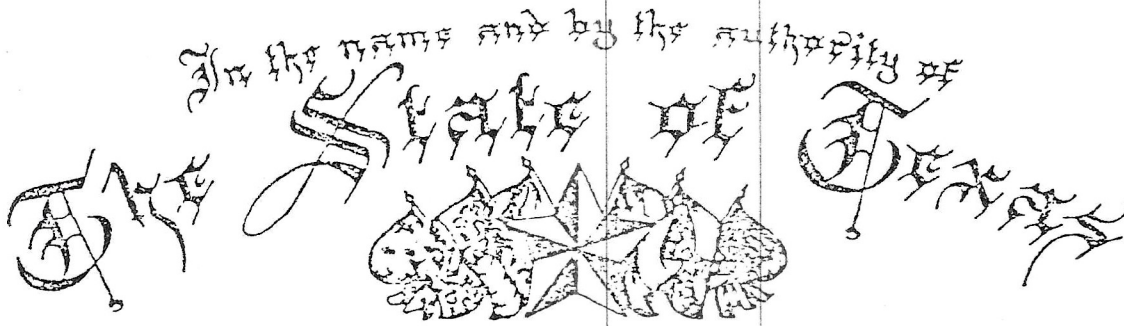 In the name and by the authority of
The State of Texas